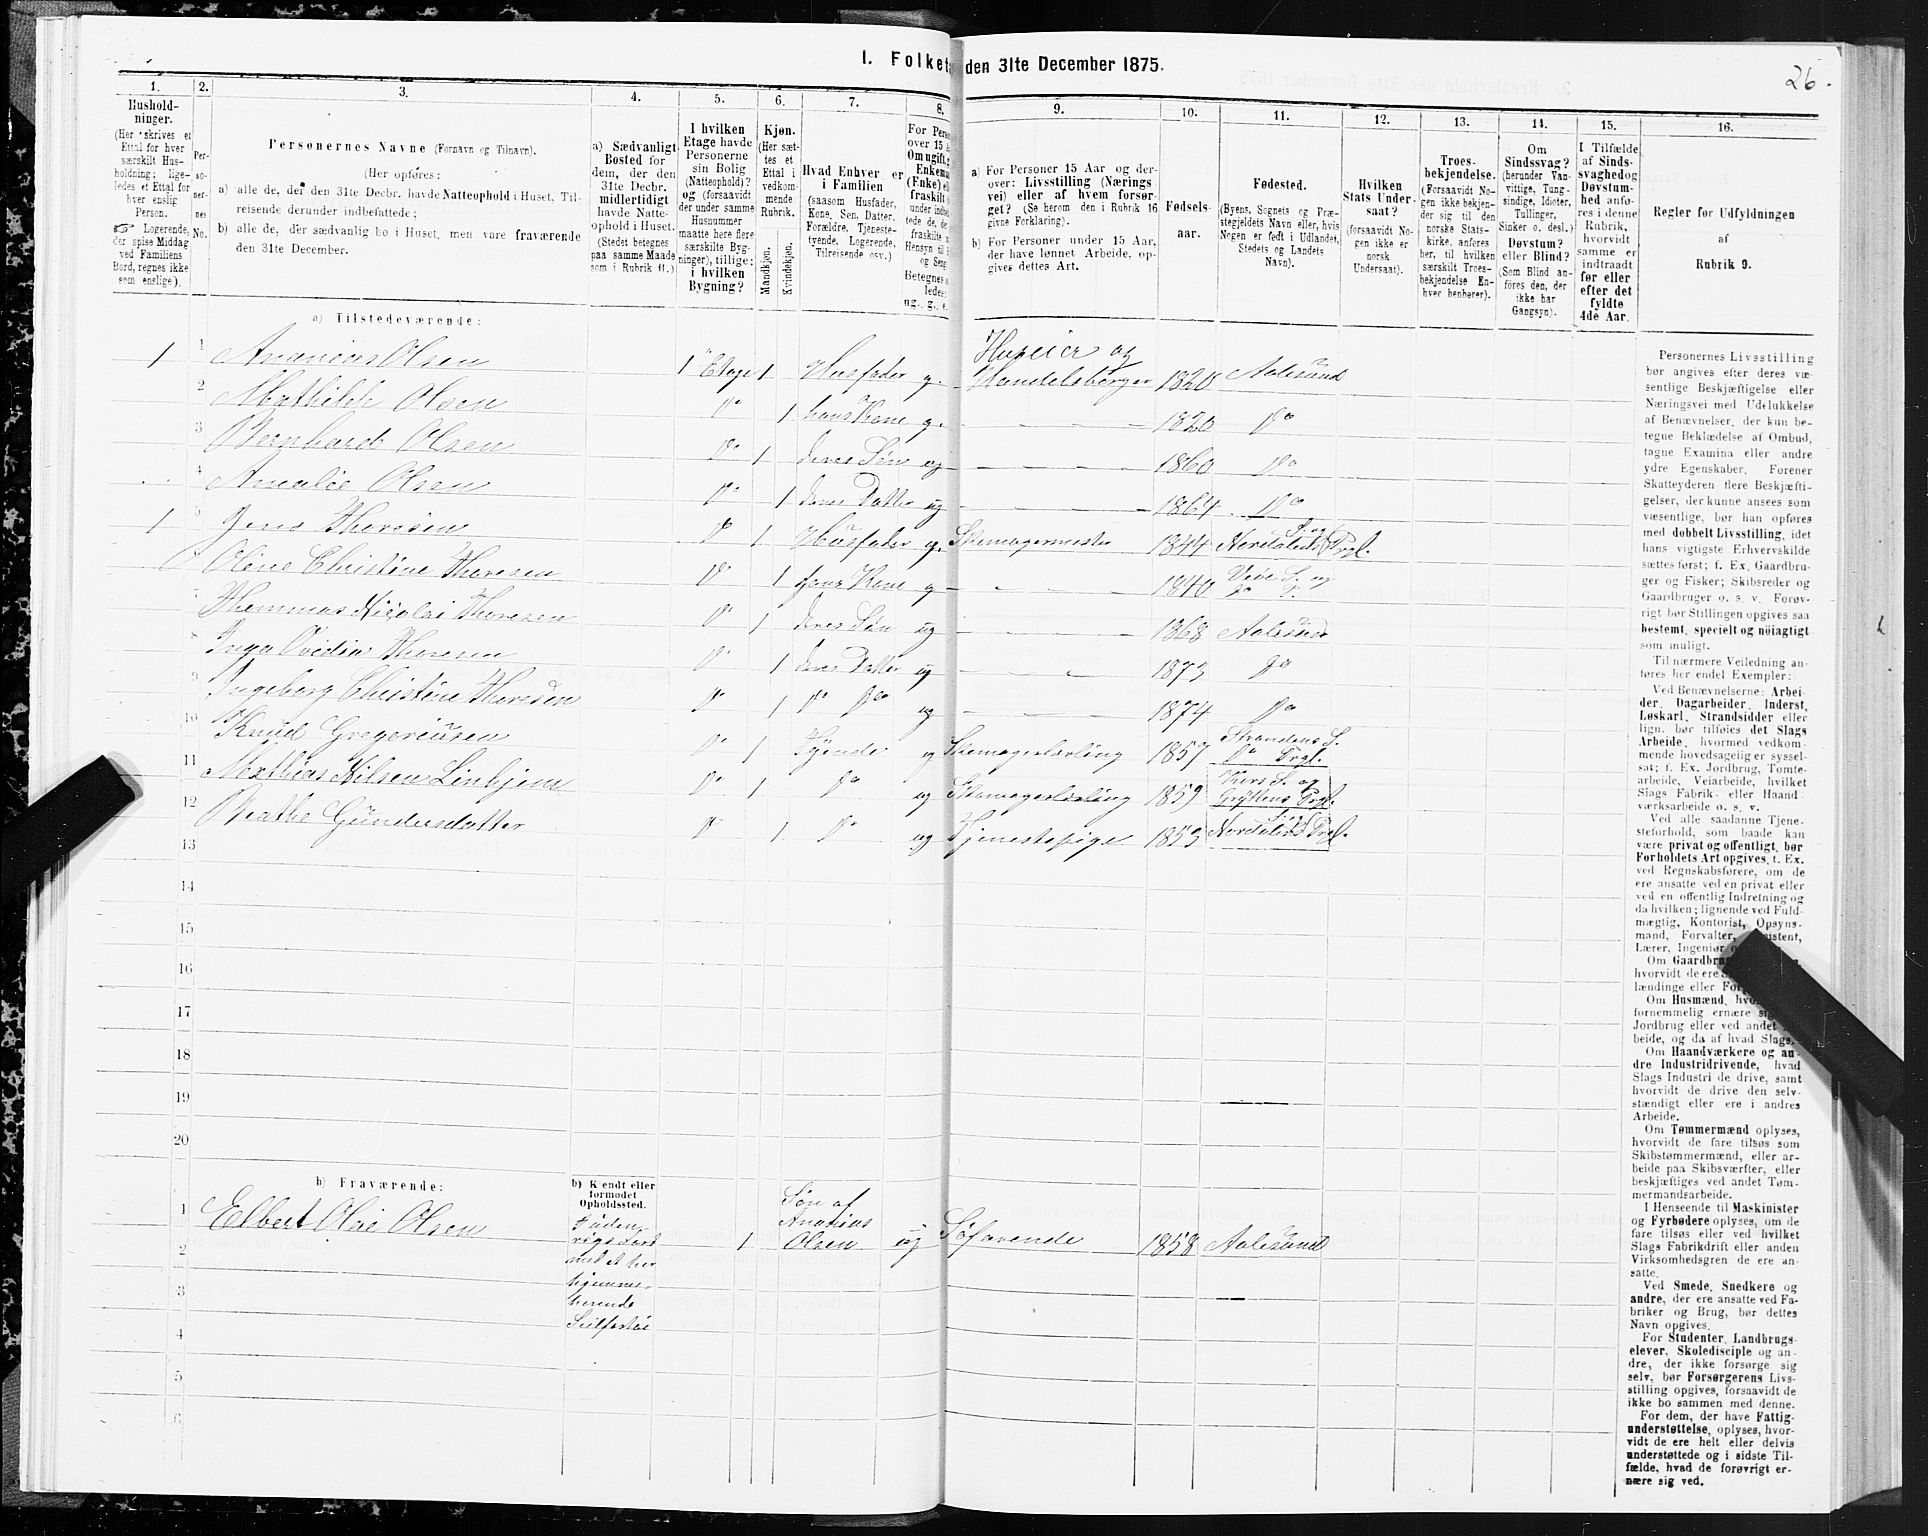 I. Folket
den 31te December 1875.
26.
1.
Hushold-
ninger.
(Her skrives et
Ettal for hver
særskilt Hus-
holdning; lige-
ledes et Ettal for
hver enslig
Person.
☞ Logerende,
der spise Middag
ved Familiens
Bord, regnes ikke
som enslige).
2.
Per-
so-
ner-
nes
No.
3.
Personernes Navne (Fornavn og Tilnavn).
(Her opføres:
a) alle de, der den 31te Decbr. havde Natteophold i Huset, Til-
reisende derunder indbefattede;
b) alle de, der sædvanlig bo i Huset, men vare fraværende
den 31te December.
4.
a) Sædvanligt
Bosted for
dem, der den
31te Decbr.
midlertidigt
havde Natte-
ophold i Huset.
(Stedet betegnes
paa samme Maade
som i Rubrik 11.)
5.
I hvilken
Etage havde
Personerne
sin Bolig
(Natteophold)?
og (forsaavidt
der under samme
Husnummer
maatte høre flere
særskilte Byg-
ninger), tillige:
i hvilken
Bygning?
6.
Kjøn.
(Her sæt-
tes et
Ettal i
vedkom-
mende
Rubrik.
Mandkjøn.
Kvindekjøn.
7.
Hvad Enhver er
i Familien
(saasom Husfader,
Kone, Søn, Datter,
Forældre, Tjeneste-
tyende, Logerende,
Tilreisende osv.)
8.
For Perso
over 15 A
Om ugift, g
Enkema
(Enke) elle
fraskilt
Betegnes s
ledes:
ug., g., e.
9.
a) For Personer 15 Aar og der-
over: Livsstilling (Nærings
vei) eller af hvem forsør-
get? (Se herom den i Rubrik 16
givne Forklaring).
b) For Personer under 15 Aar,
der have lønnet Arbeide, op-
gives dettes Art.
10.
Fødsels-
aar.
11.
Fødested.
(Byens, Sognets og Præ-
stegjeldets Navn eller, hvis
Nogen er født i Udlandet,
Stedets og Landets
Navn).
12.
Hvilken
Stats Under-
saat?
(forsaavidt No-
gen ikke er
norsk
Undersaat).
13.
Troes-
bekjendelse.
(Forsaavidt No-
gen ikke bekjen-
der sig til den
norske Stats-
kirke, anføres
her, til hvilken
særskilt Troes-
bekjendelse En-
hver henhører).
14.
Om
Sindssvag?
(herunder Van-
vittige, Tung-
sindige, Idioter,
Tullinger,
Sinker o. desl.)
Døvstum?
eller Blind?
(Som Blind an-
føres den, der
ikke har
Gangsyn).
15.
I Tilfælde
af Sinds-
svaghed og
Døvstum-
hed anfø-
res i denne
Rubrik,
hvorvidt
samme er
indtraadt
før eller
efter det
fyldte
4de Aar.
16.
Regler for Udfyldningen
af
Rubrik 9.
a) Tilstedeværende:
1 1 Ananias Olsen 1ste Etage 1 Husfader g. Huseier og
Handelsborger 1820 Aalesund
2 Mathilde Olsen Do 1 hans Kone g. 1820 Do
3 Bernhard Olsen Do 1 deres Søn ug 1860 Do
4 Amalie Olsen Do 1 deres Datter ug 1864 Do
1 5 Jens Thoresen Do 1 Husfader g. Skomagermester 1844 Norddalens S. og Prgl.
Oline Christine Thoresen Do 1 hans Kone g 1840 Veøe S. og
Do P.
7 Hemmas Nicolai Thoresen Do 1 deres Søn ug 1868 Aalesund
8 Inga Ovidia Thoresen Do 1 deres Datter ug 1873 Do
9 Ingeborg Christine Thoresen Do 1 Do Do ug 1874 Do
10 Knud Gregoriusen Do 1 Tyende ug Skomagerlærling 1857 Strandens S.
Do Prgl.
11 Mathias Nilsen Linhjem Do 1 Do ug Skomagerlærling 1859 Kors S. og
Gryttens Prgl.
12 Beathe Gundersdatter Do 1 Do ug Tjenestepige 1853 Norddalens S. og Prgl.
13
14
15
16
17
18
19
20
b) Fraværende:
b) Kjendt eller
formodet
Opholdssted.
1 Elbert Olai Olsen 1 Søn af
Ananias
Olsen ug Søfarende 1858 Aalesund
Uden-
rigs Fart
med et her
hjemme-
hørende
Seilfartøi
2
3
4
5
6
Personernes Livsstilling
bør angives efter deres væ-
sentlige Beskjæftigelse eller
Næringsvei med Udelukkelse
af Benævnelser, der kun be-
tegne Beklædelse af Ombud,
tagne Examina eller andre
ydre Egenskaber. Forener
Skatteyderen flere Beskjæfti-
gelser, der kunne ansees som
væsentlige, bør han opføres
med dobbelt Livsstilling, idet
hans vigtigste Erhvervskilde
sættes først; f. Ex. Gaardbru-
ger og Fisker; Skibsreder og
Gaardbruger o. s. v. Forøv-
rigt bør Stillingen opgives saa
bestemt, specielt og nøiagtigt
som muligt.
Til nærmere Veiledning an-
føres her endel Exempler:
Ved Benævnelserne: Arbei-
der, Dagarbeider, Inderst,
Løskarl, Strandsidder eller
lign. bør tilføies det Slags
Arbeide, hvormed vedkom-
mende hovedsagelig er syssel-
sat; f. Ex. Jordbrug, Tomte-
arbeide, Veiarbeide, hvilket
Slags Fabrik- eller Haand
værksarbeide o. s. v.
Ved alle saadanne Tjene-
steforhold, som baade kan
være privat og offentligt, bør
Forholdets Art opgives, t. Ex.
ved Regnskabsførere, om de
ere ansatte ved en privat eller
ved en offentlig Indretning og
da hvilken; lignende ved Fuld-
mægtig, Kontorist, Opsyns-
mand, Forvalter,
Lærer, Ingeniør
Om Gaardbru
hvorvidt de ere S
lændinge eller For
Om Husmænd, hvo
fornemmelig ernære sig
Jordbrug eller ved andet
beide, og da af hvad Slags.
Om Haandværkere og an-
dre Industridrivende, hvad
Slags Industri de drive, samt
hvorvidt de drive den selv-
stændigt eller ere i andres
Arbeide.
Om Tømmermænd oplyses,
hvorvidt de fare tilsøs som
Skibstømmermænd, eller ar-
beide paa Skibsværfter, eller
beskjæftiges ved andet Tøm-
mermandsarbeide.
I Henseende til Maskinister
og Fyrbødere oplyses, om de
fare tilsøs eller ved hvilket
Slags Fabrikdrift eller anden
Virksomhedsgren de ere an-
satte.
Ved Smede, Snedkere og
andre, der ere ansatte ved Fa-
briker og Brug, bør dettes
Navn opgives.
For Studenter, Landbrugs-
elever, Skoledisciple og an-
dre, der ikke forsørge sig
selv, bør Forsørgerens Livs-
stilling opgives, forsaavidt de
ikke bo sammen med denne.
For dem, der have Fattig-
understøttelse, oplyses, hvor-
vidt de ere helt eller delvis
understøttede og i sidste Til-
fælde, hvad de forøvrigt er-
nære sig ved.